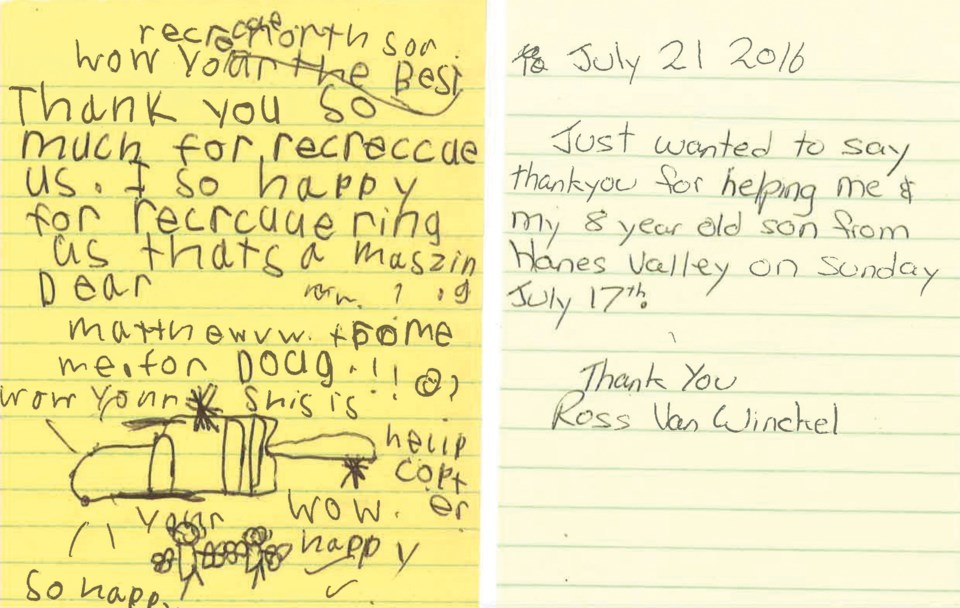 north son
wow your the Best
Thank you so
much for recreccae
us. I so happy
for recrcaue ring
us thats a maszin
Dear
matthew vw. + some
me. for Doug. ! !
wow your this is
helip
copt
er
wow.
your
happy
so happy
July 21 2016
Just wanted to say
thankyou for helping me &
my 8 year old son from
Hanes Valley on Sunday
July 17th.
Thank You
Ross Van Winckel